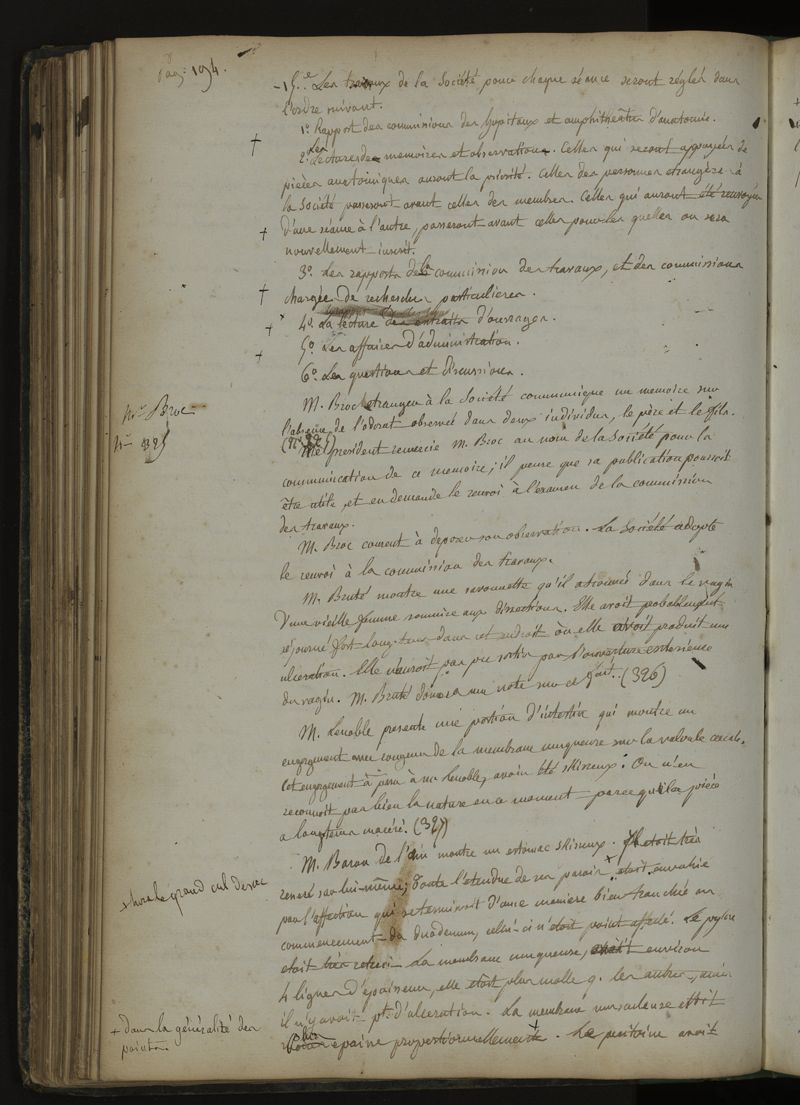 Pag: 194.
- 15.e Les travaux de la Société pour chaque séance seront réglés dans
l'ordre suivant.
1.o Rapport des commissions des hopitaux et amphithéâtres d'anatomie.
2.o Les Lectures des memoires et observations. Celles qui seront appuyées de
pièces anatomiques auront la priorité. Celles des personnes etrangères à
la Société passeront avant celles des membres. Celles qui auront été renvoyées
d'une séance à l'autre, passeront avant celles pour les quelles on sera
nouvellement inscrit.
3.o Les rapports de la commission des travaux, et des commissions
chargées de recherches particulieres.
4.o La lecture des extraits d'ouvrages.
5.o Les affaires d'administration.
6.o Les questions et discussions.
Mr Broc
M. Broc etranger à la Société communique un memoire sur
l'absence de l'odorat observée dans deux individus, le père et le fils.
n.o 325
Mr le president remercie M. Broc au nom de la Société pour la
communication de ce memoire; il pense que sa publication pourroit
être utile, et en demande le renvoi à l'examen de la commission
des travaux.
M. Broc consent à deposer son observation. La Société adopte
le renvoi à la commission des travaux.
M. Bruté montre une savonnette qu'il a trouvée dans le vagin
d'une vieille femme soumise aux dissections. Elle avoit probablement
séjourné fort long-tems dans cet endroit où elle avoit produit une
ulceration. Elle n'auroit pas pu sortir par l'ouverture exterieure
du vagin. M. Bruté donnera une note sur ce fait. (326)
M. Lenoble presente une portion d'intestin qui montre un
engorgement avec rougeur de la membrane muqueuse sur la valvule cœcale.
Cet engorgement à paru à mr Lenoble, avoir été skireux. On n'en
reconnoit pas bien la nature en ce moment parce que la pièce
a longtems macéré. (327)
M. Baron de l'ain montre un estomac skireux. Il etoit très
reserré sur lui-même; toute l'étendue de ses parois + etoit envahie
+ hors le grand cul de sac
par l'affection qui se terminoit d'une maniere bien tranchée au
commencement du duodenum, celui-ci n'étoit point affecté. Le pylore
etoit très retreci. La membrane muqueuse, avoit environ
4 lignes d'épaisseur, elle étoit plus molle q. les autres, mais
il n'y avoit pt. d'ulceration. La membrane musculeuse étoit
+ dans la généralité des
points.
plus epaisse proportionnellement +. Le peritoine avoit